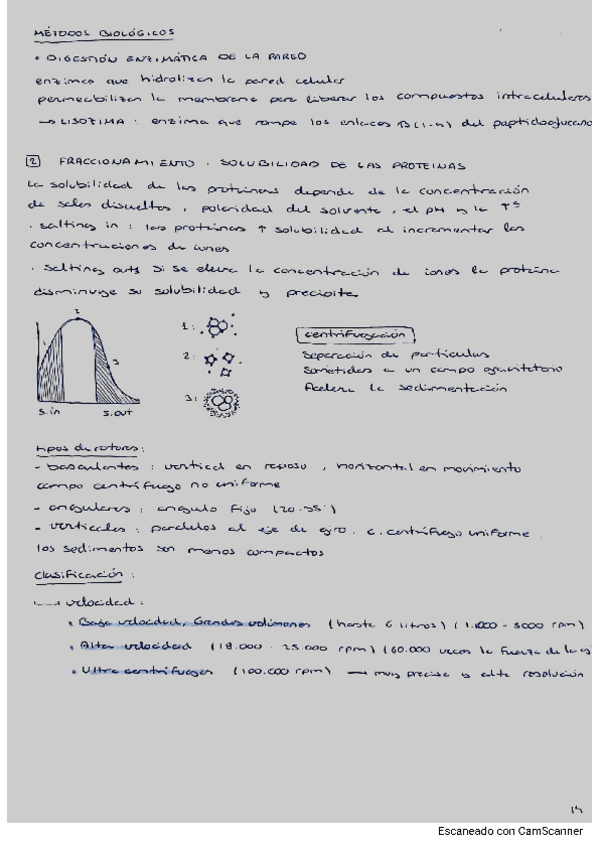 MÉTODOS BIOLÓGICOS
• DIGESTIÓN ENZIMÁTICA DE LA PARED
enzimas que hidrolizan la pared celular
permeabilizan la membrana para liberar los compuestos intracelulares
→ LISOZIMA : enzima que rompe los enlaces B(1-4) del peptidoglucano
2 FRACCIONAMIENTO . SOLUBILIDAD DE LAS PROTEÍNAS
La solubilidad de las proteínas depende de la concentración
de sales disueltas , polaridad del solvente , el pH y la Tª
. salting in : las proteínas ↑ solubilidad al incrementar las
concentraciones de iones
. salting out: si se eleva la concentración de iones la proteína
disminuye su solubilidad y precipita.
1
2
3
S. in
S. out
1:
2:
3:
centrifugación
Separación de partículas
Sometidas a un campo gravitatorio
Acelera la sedimentación
tipos de rotores :
- basculantes : vertical en reposo , horizontal en movimiento
campo centrífugo no uniforme
- angulares : angulo fijo (20-35°)
- verticales : paralelos al eje de giro . c. centrífugo uniforme .
los sedimentos son menos compactos
Clasificación :
→ velocidad :
• Baja velocidad, Grandes volúmenes (hasta 6 litros) (1.000 - 5000 rpm)
• Alta velocidad (18.000 - 25.000 rpm) (60.000 veces la fuerza de la
• Ultracentrífugas (100.000 rpm) → muy precisa y alta resolución
14
Escaneado con CamScanner